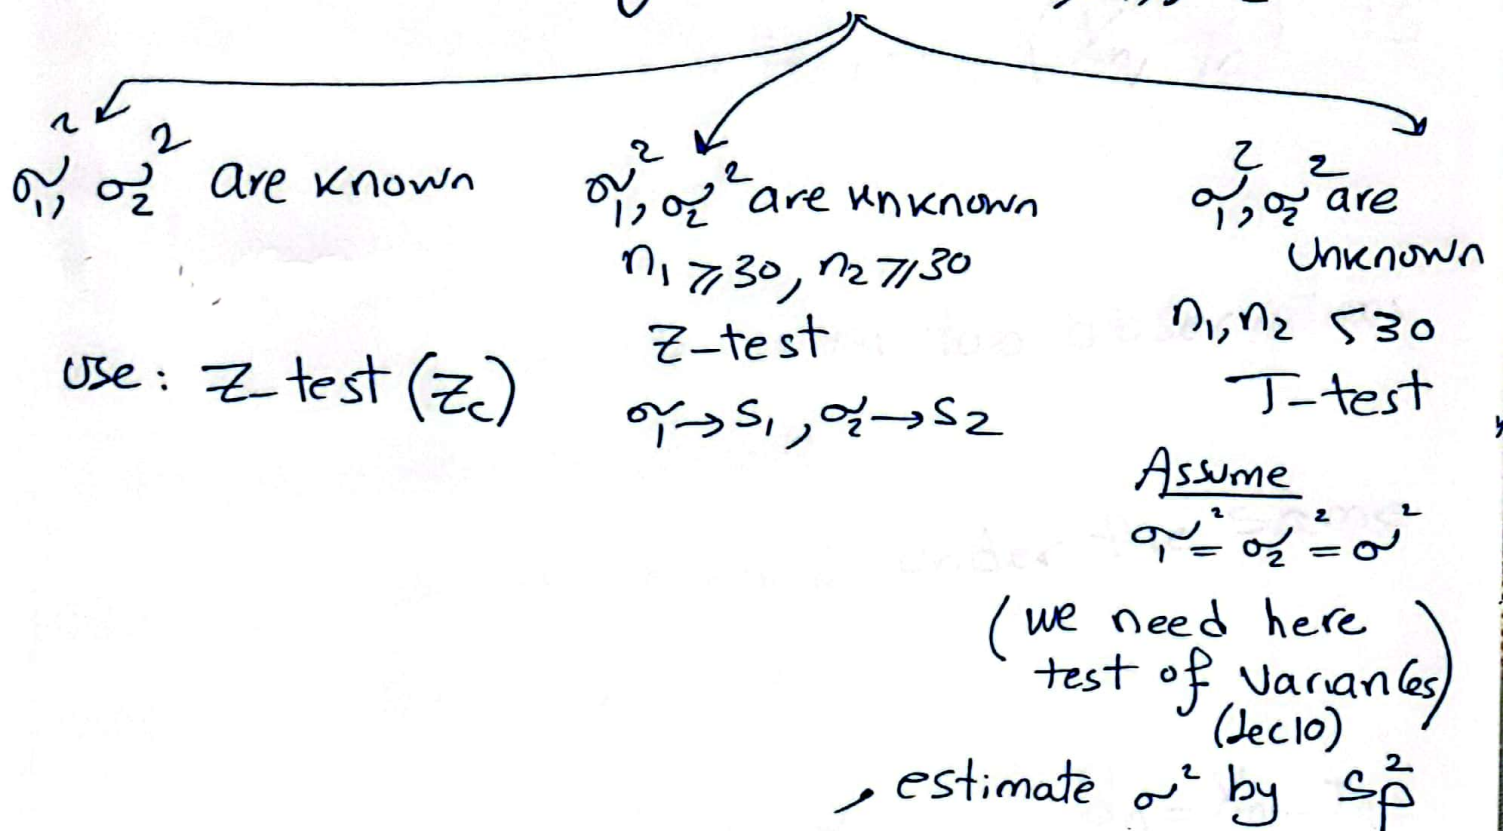 σ₁², σ₂² are known
use: Z-test (Zc)
σ₁², σ₂² are unknown
n₁ ≥ 30, n₂ ≥ 30
Z-test
σ₁ → S₁, σ₂ → S₂
σ₁², σ₂² are
Unknown
n₁, n₂ < 30
T-test
Assume
σ₁² = σ₂² = σ²
(we need here
test of variances)
(Lec10)
, estimate σ² by Sp²